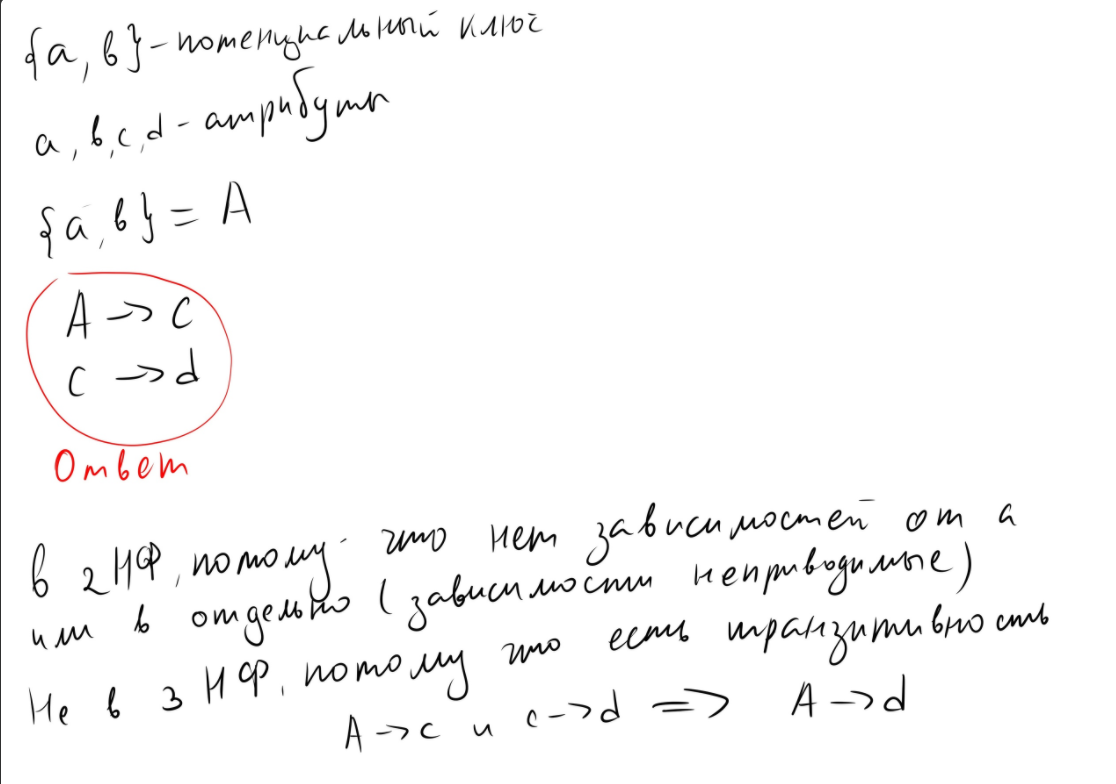 {a, b} - потенциальный ключ
a, b, c, d - атрибуты
{a, b} = A
A → C
C → d
Ответ
В 2 НФ, потому что нет зависимостей от a
или b отдельно (зависимости неприводимые)
Не в 3 НФ, потому что есть транзитивность
A → c и c → d => A → d